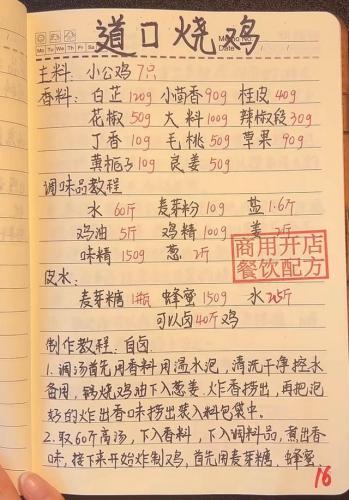 道口烧鸡
Mo Tu We Th Fr Sa
Memo No.
Date / /
主料: 小公鸡7只
香料: 白芷120g 小茴香90g 桂皮40g
花椒50g 大料100g 辣椒段30g
丁香10g 毛桃50g 草果90g
黄栀子10g 良姜50g
调味品教程
水60斤 麦芽粉10g 盐1.6斤
鸡油5斤 鸡精100g 姜2斤
味精150g 葱2斤
商用开店
餐饮配方
皮水:
麦芽糖1瓶 蜂蜜150g 水2.5斤
可以卤40斤鸡
制作教程: 白卤
1.调汤首先用香料用温水泡,清洗干净控水
备用,锅烧鸡油下入葱姜.炸香捞出,再把泡
好的炸出香味捞出装入料包袋中.
2.取60斤高汤,下入香料,下入调料品,煮出香
味,接下来开始炸制鸡,首先用麦芽糖.蜂蜜.
16